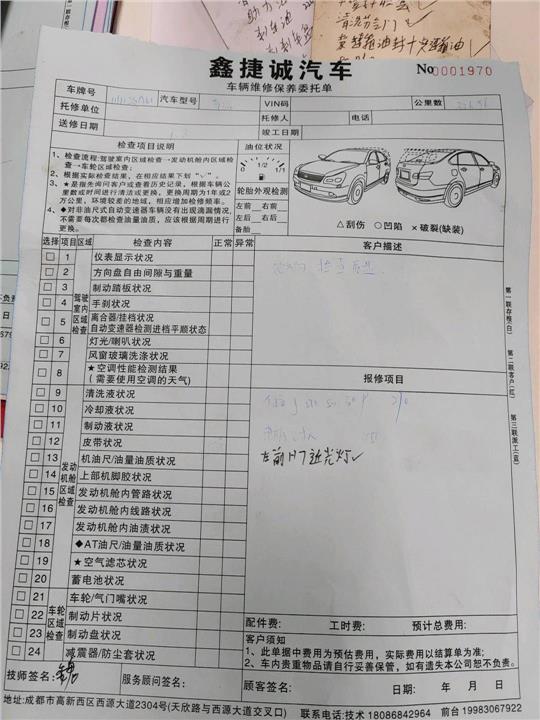 清洗节门
变速箱油封十变速箱油
鑫捷诚汽车
No 0001970
车辆维修保养委托单
车牌号 汽车型号 VIN码 公里数
托修单位 托修人 电话
送修日期 竣工日期
检查项目说明
1、检查流程:驾驶室内区域检查→发动机舱内区域检查→车轮区域检查:
2、根据实际检查结果，在相应结果下划“√”。
3、★是指先询问客户或查看历史记录，根据车辆公里数或时间进行清洁或更换，更换周期为1年或2万公里，环境较差的地域，相应增加检修频率。
4、◆对非油尺式自动变速器车辆没有出现滴漏情况，不需要每次都检查油量油质，应该根据周期进行更换。
油位状况
0 1/2 1/1
轮胎外观检测
左前 右前
左后 右后
备胎
△刮伤 ○凹陷 ×破裂(缺装)
选择 项目 区域 检查内容 正常 异常
驾驶室内区域检查
1 仪表显示状况
2 方向盘自由间隙与重量
3 制动踏板状况
4 手刹状况
5 离合器/挂档状况
自动变速器检测进档平顺状态
6 灯光/喇叭状况
7 风窗玻璃洗涤状况
8 ★空调性能检测结果
(需要使用空调的天气)
发动机舱区域检查
9 清洗液状况
10 冷却液状况
11 制动液状况
12 皮带状况
13 机油尺/油量油质状况
14 上部机脚胶状况
15 发动机舱内管路状况
16 发动机舱内线路状况
17 发动机舱内油渍状况
18 ◆AT油尺/油量油质状况
19 ★空气滤芯状况
20 蓄电池状况
车轮区域检查
21 车轮/气门嘴状况
22 制动片状况
23 制动盘状况
24 减震器/防尘套状况
客户描述
报修项目
左前H7近光灯✓
第一联存根(白)
第二联客户(红)
第三联派工(蓝)
配件费: 工时费: 预计总费用:
客户须知
1、此单据中费用为预估费用，实际费用以结算单为准;
2、车内贵重物品请自行妥善保管，如有遗失本公司恕不负责。
技师签名: 服务顾问签名: 顾客签名: 日期: 年 月 日
地址:成都市高新西区西源大道2304号(天欣路与西源大道交叉口) 联系电话:技术 18086842964 前台 19983067922